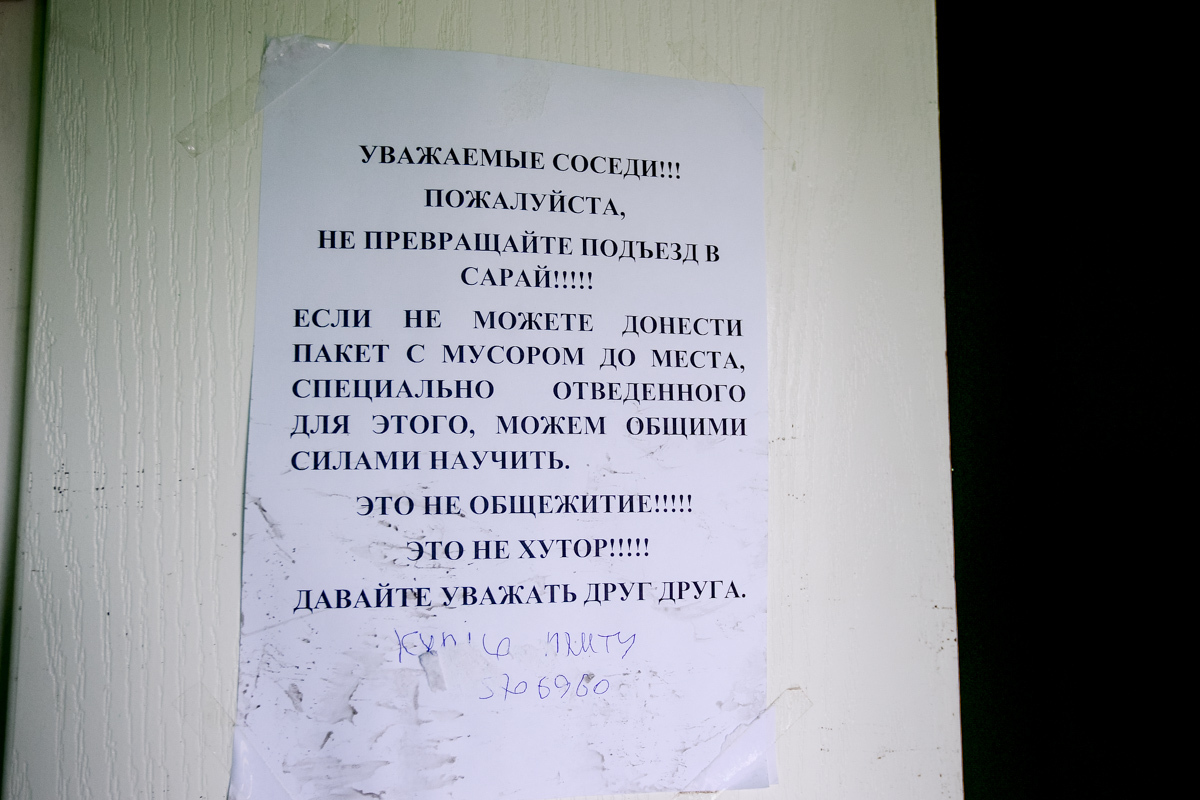 УВАЖАЕМЫЕ СОСЕДИ!!!
ПОЖАЛУЙСТА,
НЕ ПРЕВРАЩАЙТЕ ПОДЪЕЗД В
САРАЙ!!!!!
ЕСЛИ НЕ МОЖЕТЕ ДОНЕСТИ
ПАКЕТ С МУСОРОМ ДО МЕСТА,
СПЕЦИАЛЬНО ОТВЕДЕННОГО
ДЛЯ ЭТОГО, МОЖЕМ ОБЩИМИ
СИЛАМИ НАУЧИТЬ.
ЭТО НЕ ОБЩЕЖИТИЕ!!!!!
ЭТО НЕ ХУТОР!!!!!
ДАВАЙТЕ УВАЖАТЬ ДРУГ ДРУГА.
плиту
5706960